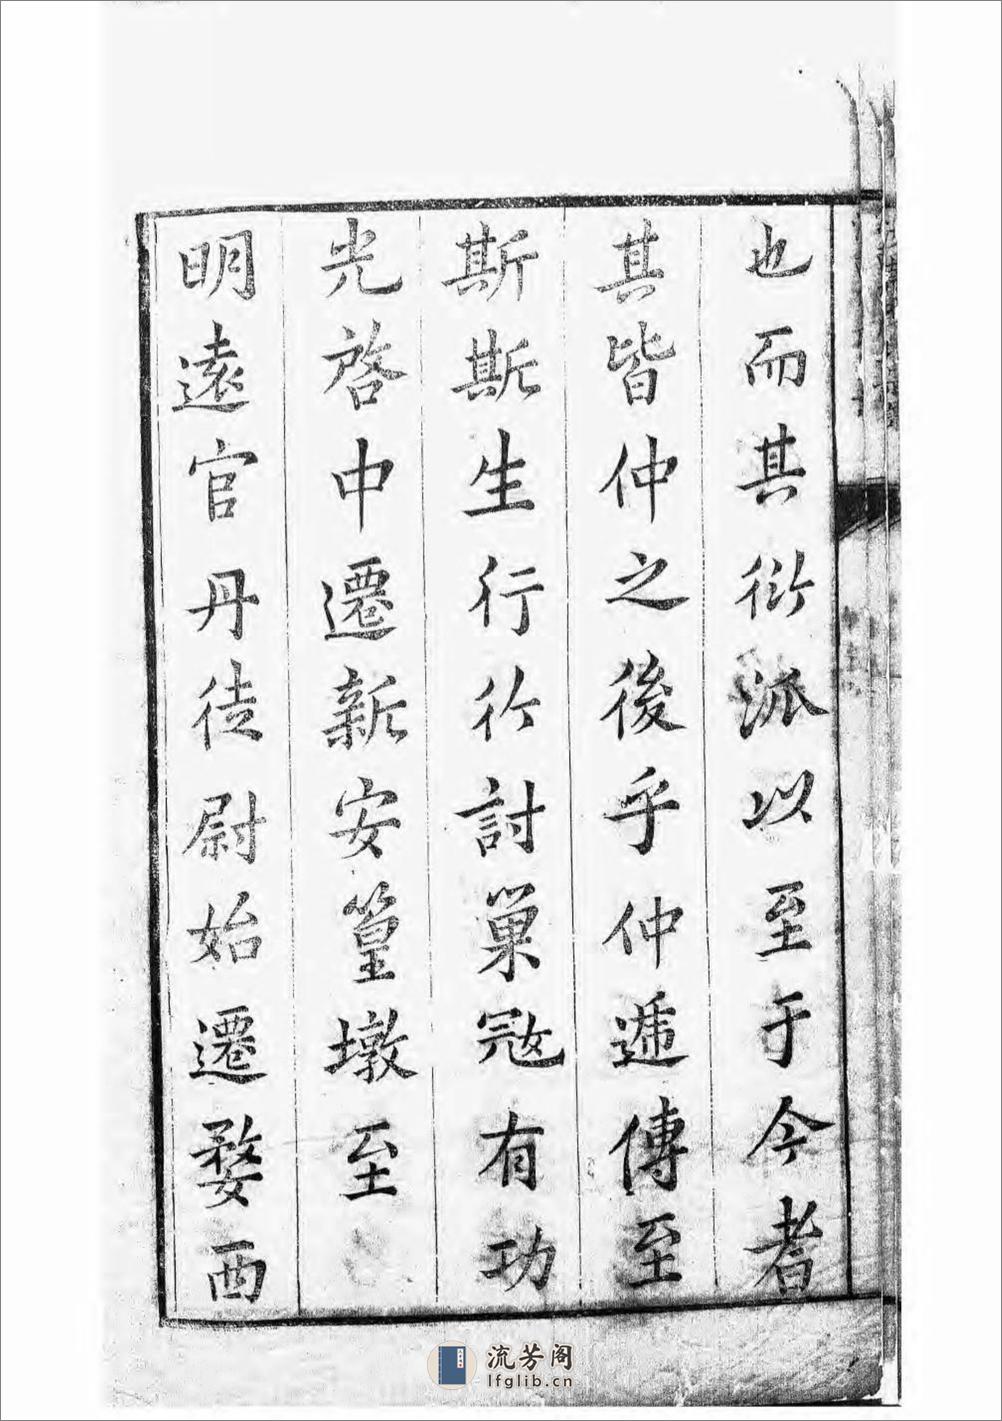 也而其衍派以至于今者
其皆仲之後乎仲遞傳至
斯斯生行行討巢冦有功
光啓中遷新安篁墩至
明遠官丹徒尉始遷婺西
流芳阁
lfglib.cn